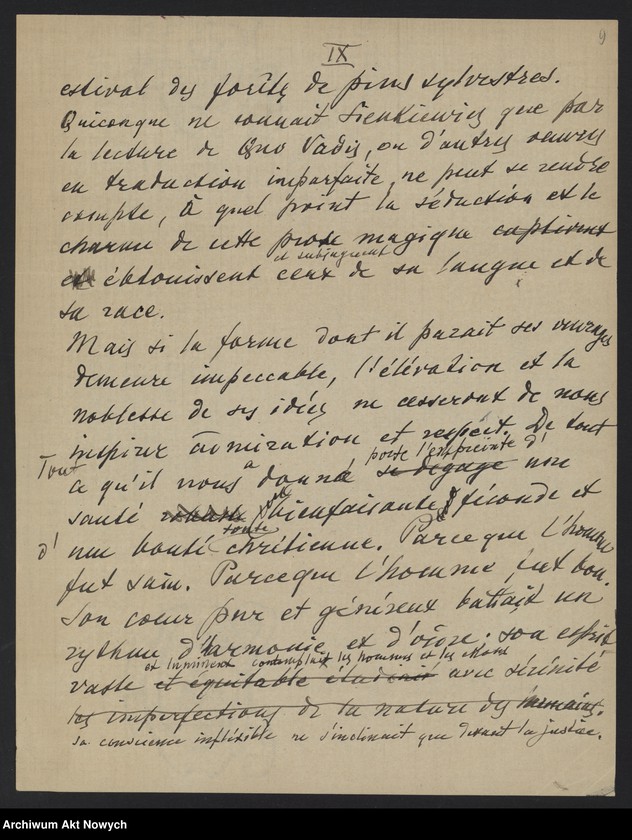 IX
9
estival des forêts de pins sylvestres.
Quiconque ne connait Sienkiewicz que par
la lecture de Quo Vadis, ou d'autres oeuvres
en traduction imparfaite, ne peut se rendre
compte, à quel point la séduction et le
charme de cette prose magique captivent
et subjuguent
et éblouissent ceux de sa langue et de
sa race.
Mais si la forme dont il parait ses ouvrages
demeure impeccable, l'élévation et la
noblesse de ses idées ne cesseront de nous
inspirer admiration et respect. De tout
Tout
porte l'empreinte d'
ce qu'il nous a donné se dégage une
santé bienfaisante, féconde et
toute
d'une bonté chrétienne. Parceque l'homme
fut sain. Parceque l'homme fut bon.
Son coeur pur et généreux battait un
rythme d'harmonie et d'ordre; son esprit
et contemplait les hommes et les choses
vaste et équitable étudiait avec sérénité
les imperfections de la nature des humains.
Sa conscience inflexible ne s'inclinait que devant la justice.
Archiwum Akt Nowych